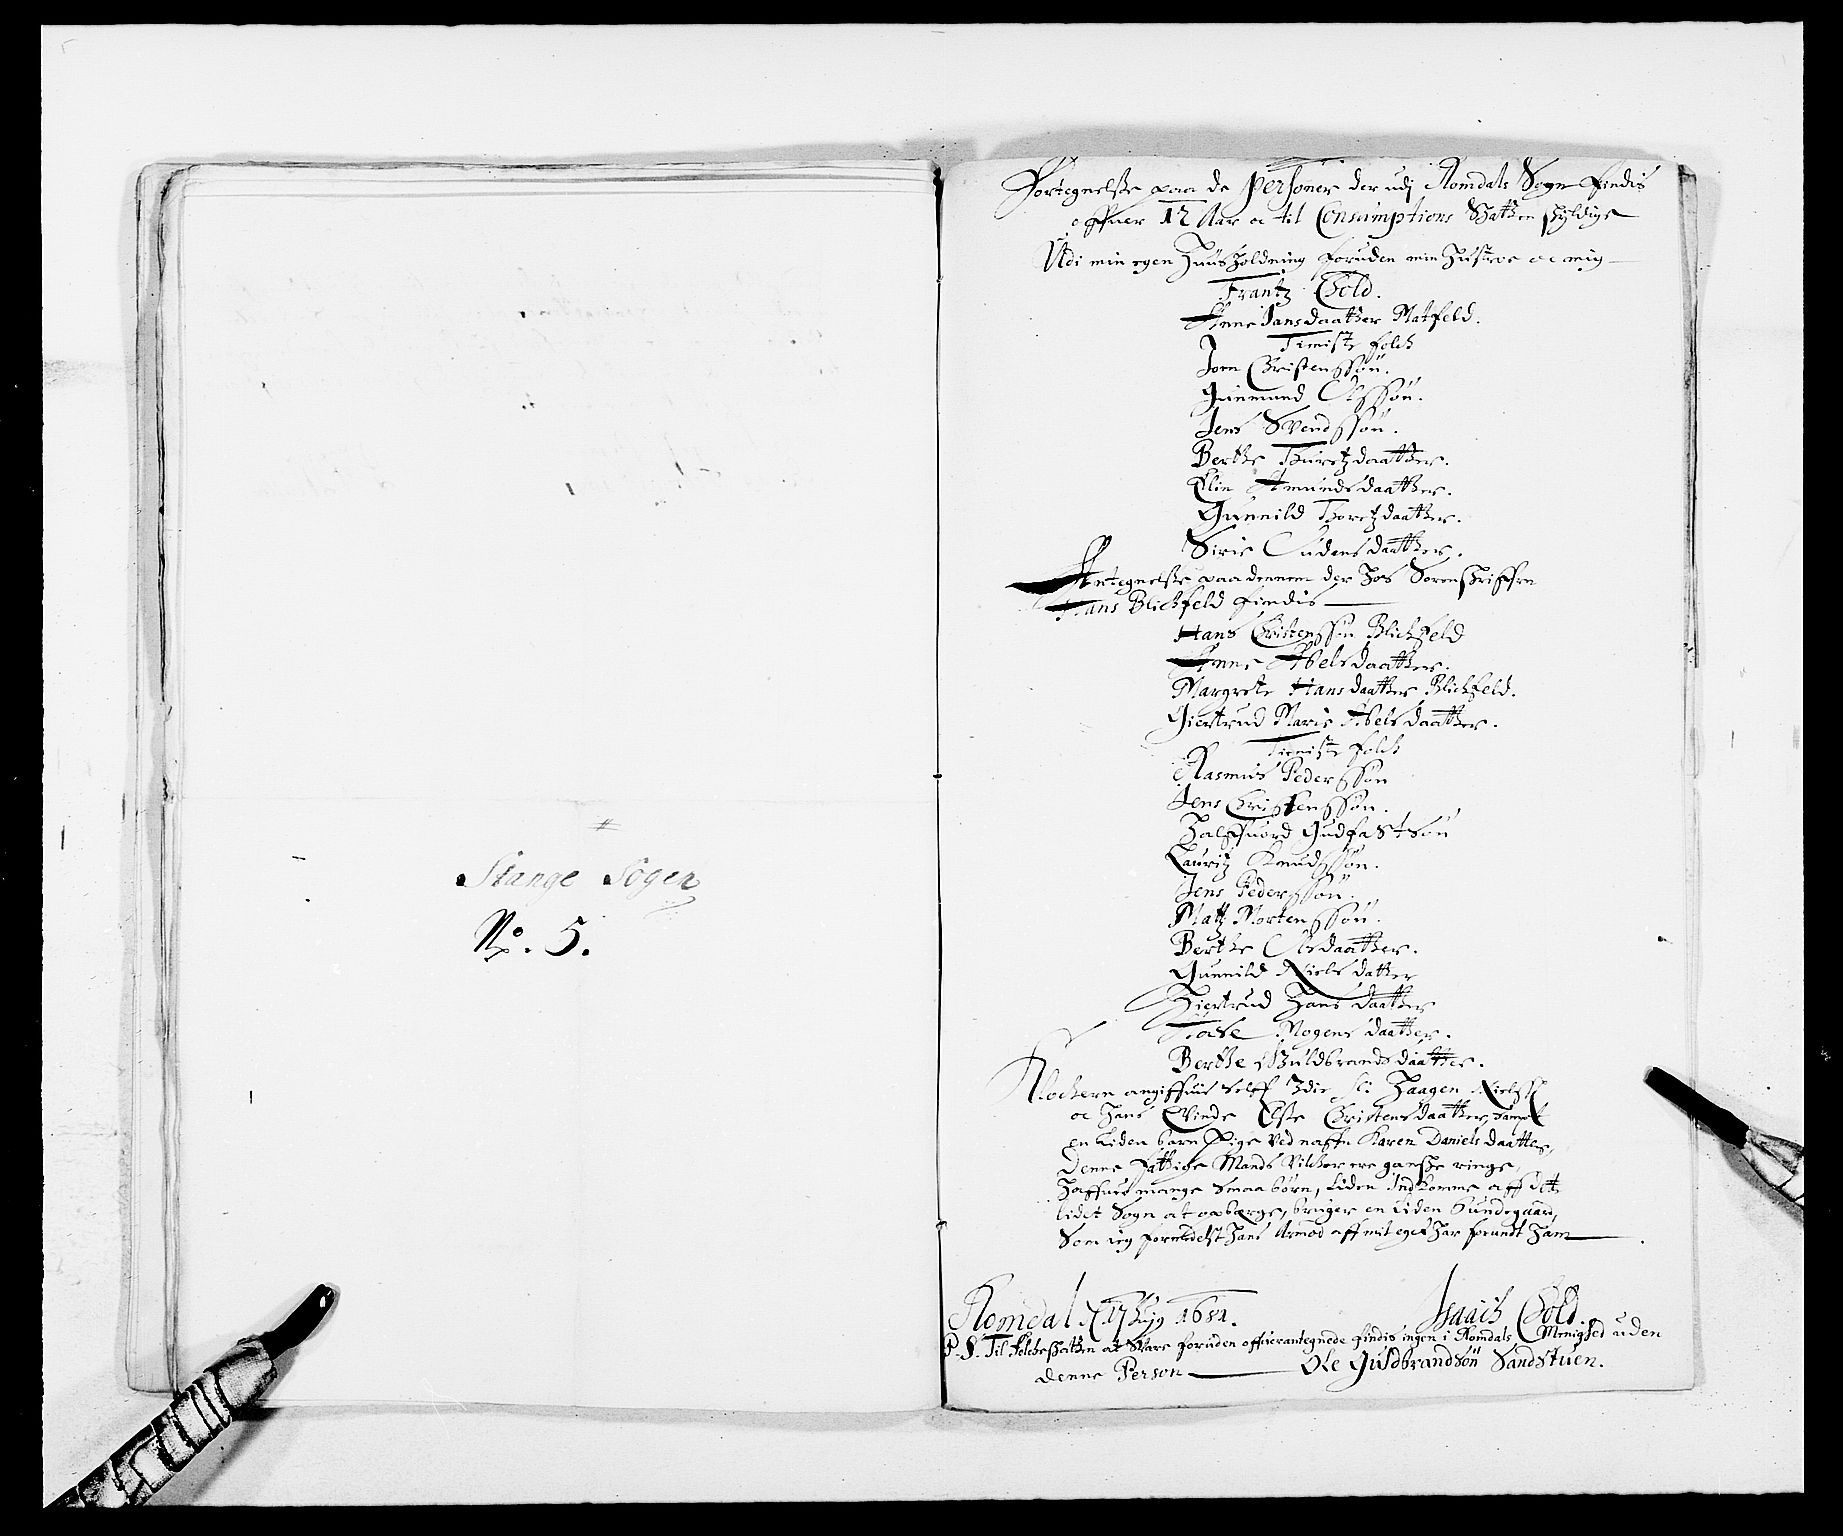 Stange Sogen
No. 5.
Fortegnelsse paa de Personer der udj Romdals Sogn findis
offuer 12 Aar oc til Consumptions Skatten skyldige
Udi min egen Huusholdning foruden min Hustroe oc mig
Frantz Chold.
Anne Jansdaatter Matfeld.
Tieniste folck
Joen Christenssøn.
Gunmund Olssøn.
Jens Svendssøn.
Berthe Thuretzdaatter.
Elin Amundsdaatter.
Gunnild Thoretzdaatter.
Sirie Audensdaatter.
Antegnelsse paa dennem der hos Sorenskriffren
Hans Blichfeld findis
Hans Christenssøn Blichfeld
Anne Abelsdaatter.
Margrete Hansdaatter Blichfeld.
Giertrud Marie Abelsdaatter.
Tieniste folck
Rasmus Pederssøn
Jens Christenssøn.
Halffuord Gudfastsøn
Lauritz Knudssøn.
Jens Pederssøn.
Matz Mortenssøn.
Berthe Olsdaatter.
Gunnild Nielsdatter
Giertrud Hansdaatter
Tore Mogensdaatter.
Berthe Guldbrandsdaatter.
Klockern angiffuis selff 3die Haagen Nielss
oc hans Qvinde Else Christensdaatter, sampt
en liden barn Pige ved nafn Karen Danielsdaatter,
Denne fattige Mands Vilckor ere ganske ringe,
haffuer mange smaa børn, liden Indkomme aff det
lidet Sogn at opbærge, bruger en liden Bundegaard,
Som ieg formedelst hans Armod aff mit eget har forundt ham
Romdal 1684.
Isaach Chold.
P.S. Til Folckeskatten at svare foruden offuerantegnede findis ingen i Romdals Menighed uden
denne Person Ole Guldbrandsøn Sandstuen.